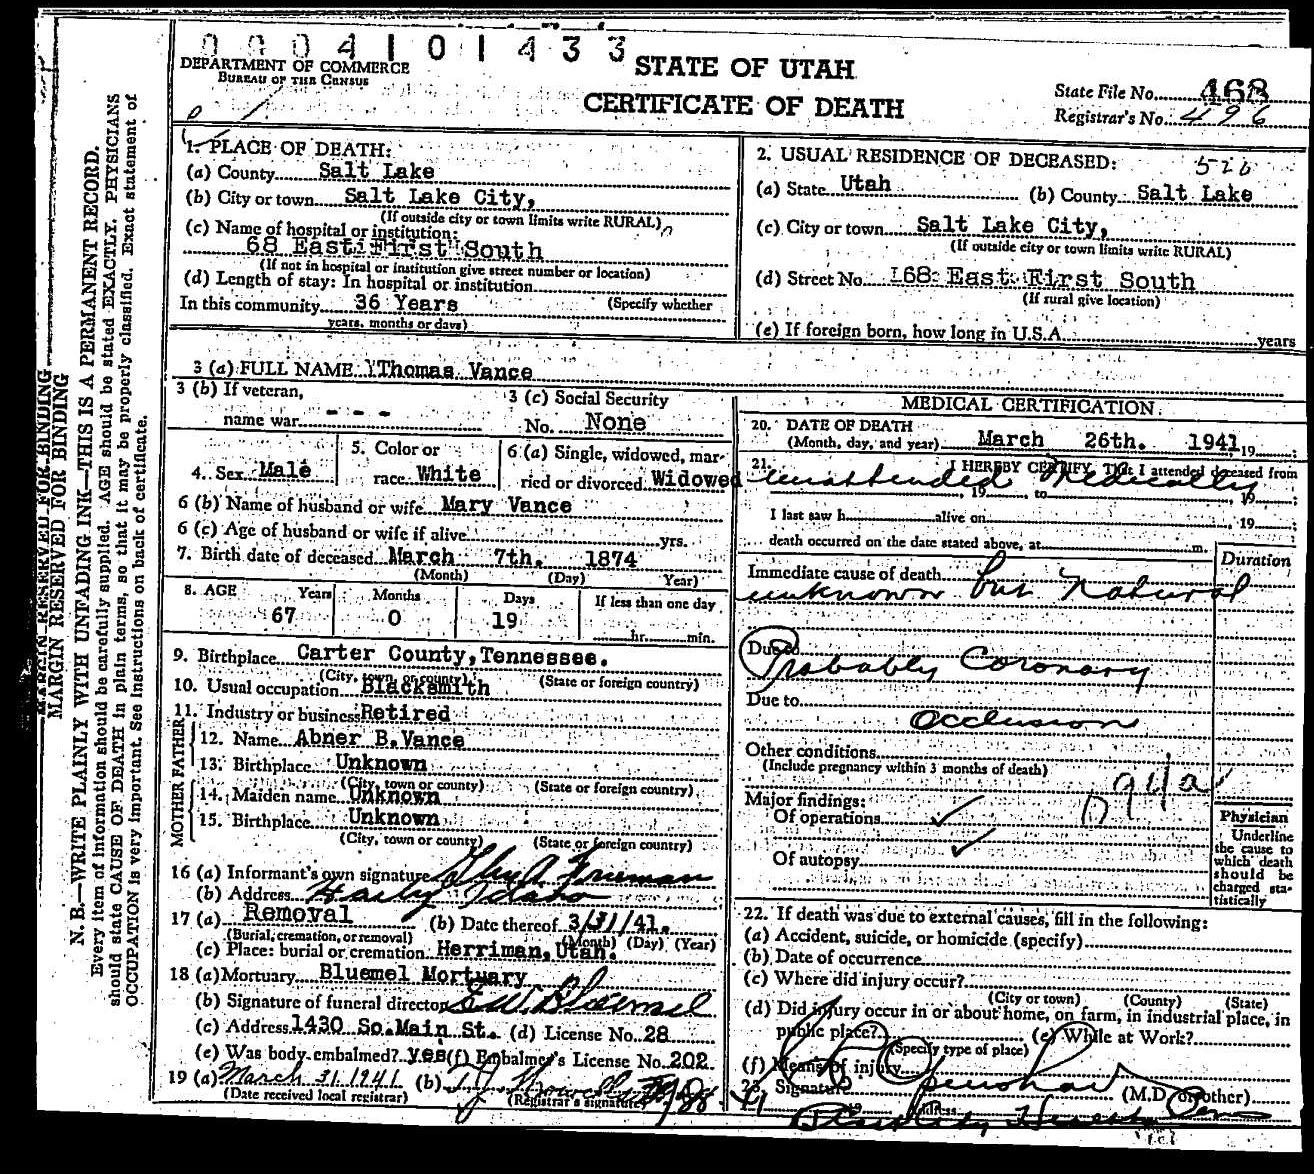 0004101433
DEPARTMENT OF COMMERCE
BUREAU OF THE CENSUS
STATE OF UTAH
CERTIFICATE OF DEATH
State File No. 468
Registrar's No. 496
1. PLACE OF DEATH:
(a) County Salt Lake
(b) City or town Salt Lake City,
(If outside city or town limits write RURAL)
(c) Name of hospital or institution:
68 East First South
(If not in hospital or institution give street number or location)
(d) Length of stay: In hospital or institution
In this community 36 Years (Specify whether
years, months or days)
2. USUAL RESIDENCE OF DECEASED: 526
(a) State Utah (b) County Salt Lake
(c) City or town Salt Lake City,
(If outside city or town limits write RURAL)
(d) Street No. 168 East First South
(If rural give location)
(e) If foreign born, how long in U.S.A. years
3 (a) FULL NAME Thomas Vance
3 (b) If veteran,
name war - - -
3 (c) Social Security
No. None
4. Sex Male
5. Color or
race White
6 (a) Single, widowed, mar-
ried or divorced Widowed
6 (b) Name of husband or wife Mary Vance
6 (c) Age of husband or wife if alive yrs.
7. Birth date of deceased March 7th. 1874
(Month) (Day) Year)
8. AGE Years Months Days If less than one day
67 0 19 hr. min.
9. Birthplace Carter County, Tennessee.
(City, town, or county) (State or foreign country)
10. Usual occupation Blacksmith
11. Industry or business Retired
FATHER
12. Name Abner B. Vance
13. Birthplace Unknown
(City, town or county) (State or foreign country)
MOTHER
14. Maiden name Unknown
15. Birthplace Unknown
(City, town or county) (State or foreign country)
16 (a) Informant's own signature A. Freeman
(b) Address Idaho
17 (a) Removal (b) Date thereof 3/31/41.
(Burial, cremation, or removal) (Month) (Day) (Year)
(c) Place: burial or cremation Herriman, Utah.
18 (a) Mortuary Bluemel Mortuary
(b) Signature of funeral director E W. Bluemel
(c) Address 1430 So. Main St. (d) License No. 28
(e) Was body embalmed? yes (f) Embalmer's License No. 202
19 (a) March 31 1941 (b) T J Howells
(Date received local registrar) (Registrar's signature)
MEDICAL CERTIFICATION
20. DATE OF DEATH
(Month, day, and year) March 26th. 1941, 19 ;
21. I HEREBY CERTIFY, That I attended deceased from
unattended Medically
, 19 , to , 19 ;
I last saw h alive on , 19 ;
death occurred on the date stated above, at m.
Duration
Immediate cause of death but Natural
unknown
Due to
Probably Coronary
Due to
occlusion
Other conditions
(Include pregnancy within 3 months of death)
94a
Major findings:
Of operations ✓
Of autopsy ✓
Physician
Underline
the cause to
which death
should be
charged sta-
tistically
22. If death was due to external causes, fill in the following:
(a) Accident, suicide, or homicide (specify)
(b) Date of occurrence
(c) Where did injury occur?
(City or town) (County) (State)
(d) Did injury occur in or about home, on farm, in industrial place, in
public place? (e) While at Work?
(Specify type of place)
(f) Means of injury
23. Signature (M.D. or other)
Address
MARGIN RESERVED FOR BINDING
MARGIN RESERVED FOR BINDING
N. B.—WRITE PLAINLY WITH UNFADING INK—THIS IS A PERMANENT RECORD.
Every item of information should be carefully supplied. AGE should be stated EXACTLY. PHYSICIANS
should state CAUSE OF DEATH in plain terms, so that it may be properly classified. Exact statement of
OCCUPATION is very important. See instructions on back of certificate.